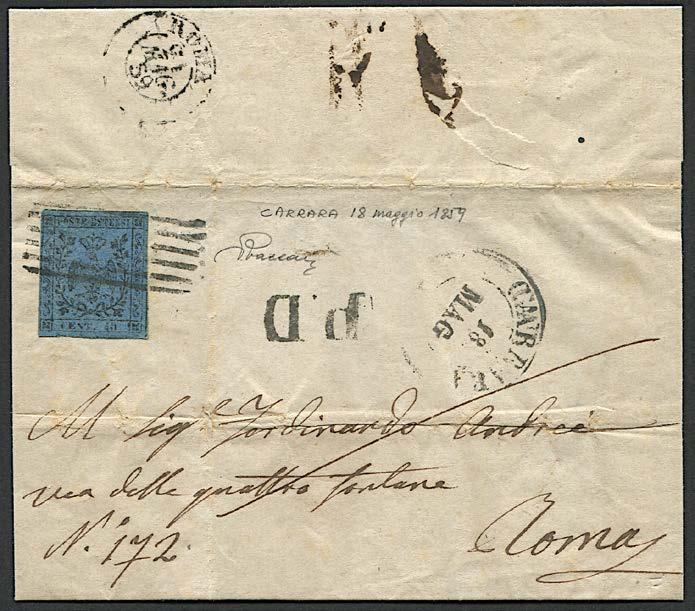 ROMA
MAG
59
POSTE ESTENSI
CENT. 40
CARRARA 18 maggio 1859
P.D
CARRARA
18
MAG
Al Sig.r Ferdinando Andrei
via delle quattro fontane
N.° 172.
Roma